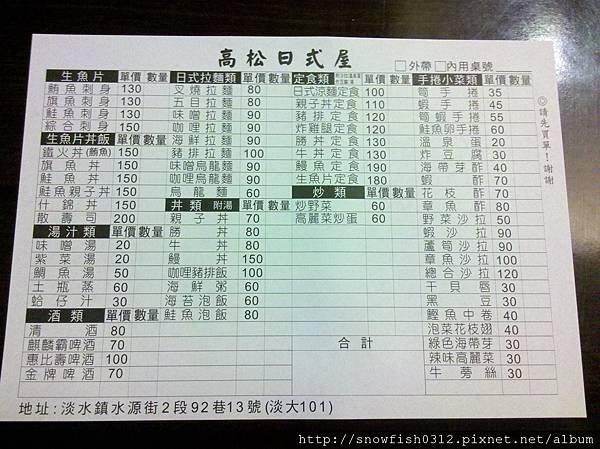 高松日式屋
□外帶 □內用桌號
生魚片 單價 數量
鮪魚刺身 130
旗魚刺身 130
鮭魚刺身 130
綜合刺身 150
生魚片丼飯 單價 數量
鐵火丼(鮪魚) 150
旗魚丼 150
鮭魚丼 150
鮭魚親子丼 150
什錦丼 150
散壽司 200
湯汁類 單價 數量
味噌湯 20
紫菜湯 20
鯛魚湯 50
土瓶蒸 60
蛤仔汁 30
酒類 單價 數量
清酒 80
麒麟霸啤酒 70
惠比壽啤酒 100
金牌啤酒 70
日式拉麵類 單價 數量
叉燒拉麵 80
五目拉麵 80
味噌拉麵 90
咖哩拉麵 90
海鮮拉麵 90
豬排拉麵 100
味噌烏龍麵 90
咖哩烏龍麵 90
烏龍麵 60
丼類 附湯 單價 數量
親子丼 70
勝丼 80
牛丼 80
鰻丼 150
咖哩豬排飯 100
海鮮粥 60
海苔泡飯 60
鮭魚泡飯 80
定食類 單價 數量
日式涼麵定食 100
親子丼定食 110
豬排定食 120
炸雞腿定食 120
勝丼定食 130
牛丼定食 130
鰻魚定食 190
生魚片定食 180
炒類 單價 數量
炒野菜 60
高麗菜炒蛋 60
合計
手捲小菜類 單價 數量
筍手捲 35
蝦手捲 45
筍蝦手捲 55
鮭魚卵手捲 60
溫泉蛋 20
炸豆腐 30
海帶芽酢 40
蝦酢 70
花枝酢 70
章魚酢 80
野菜沙拉 50
蝦沙拉 90
蘆筍沙拉 90
章魚沙拉 100
總合沙拉 120
干貝唇 30
黑豆 30
鰹魚中卷 40
泡菜花枝翅 40
綠色海帶芽 30
辣味高麗菜 30
牛蒡絲 30
◎請先買單!謝謝
地址:淡水鎮水源街2段92巷13號(淡大101)
http://snowfish0312.pixnet.net/album